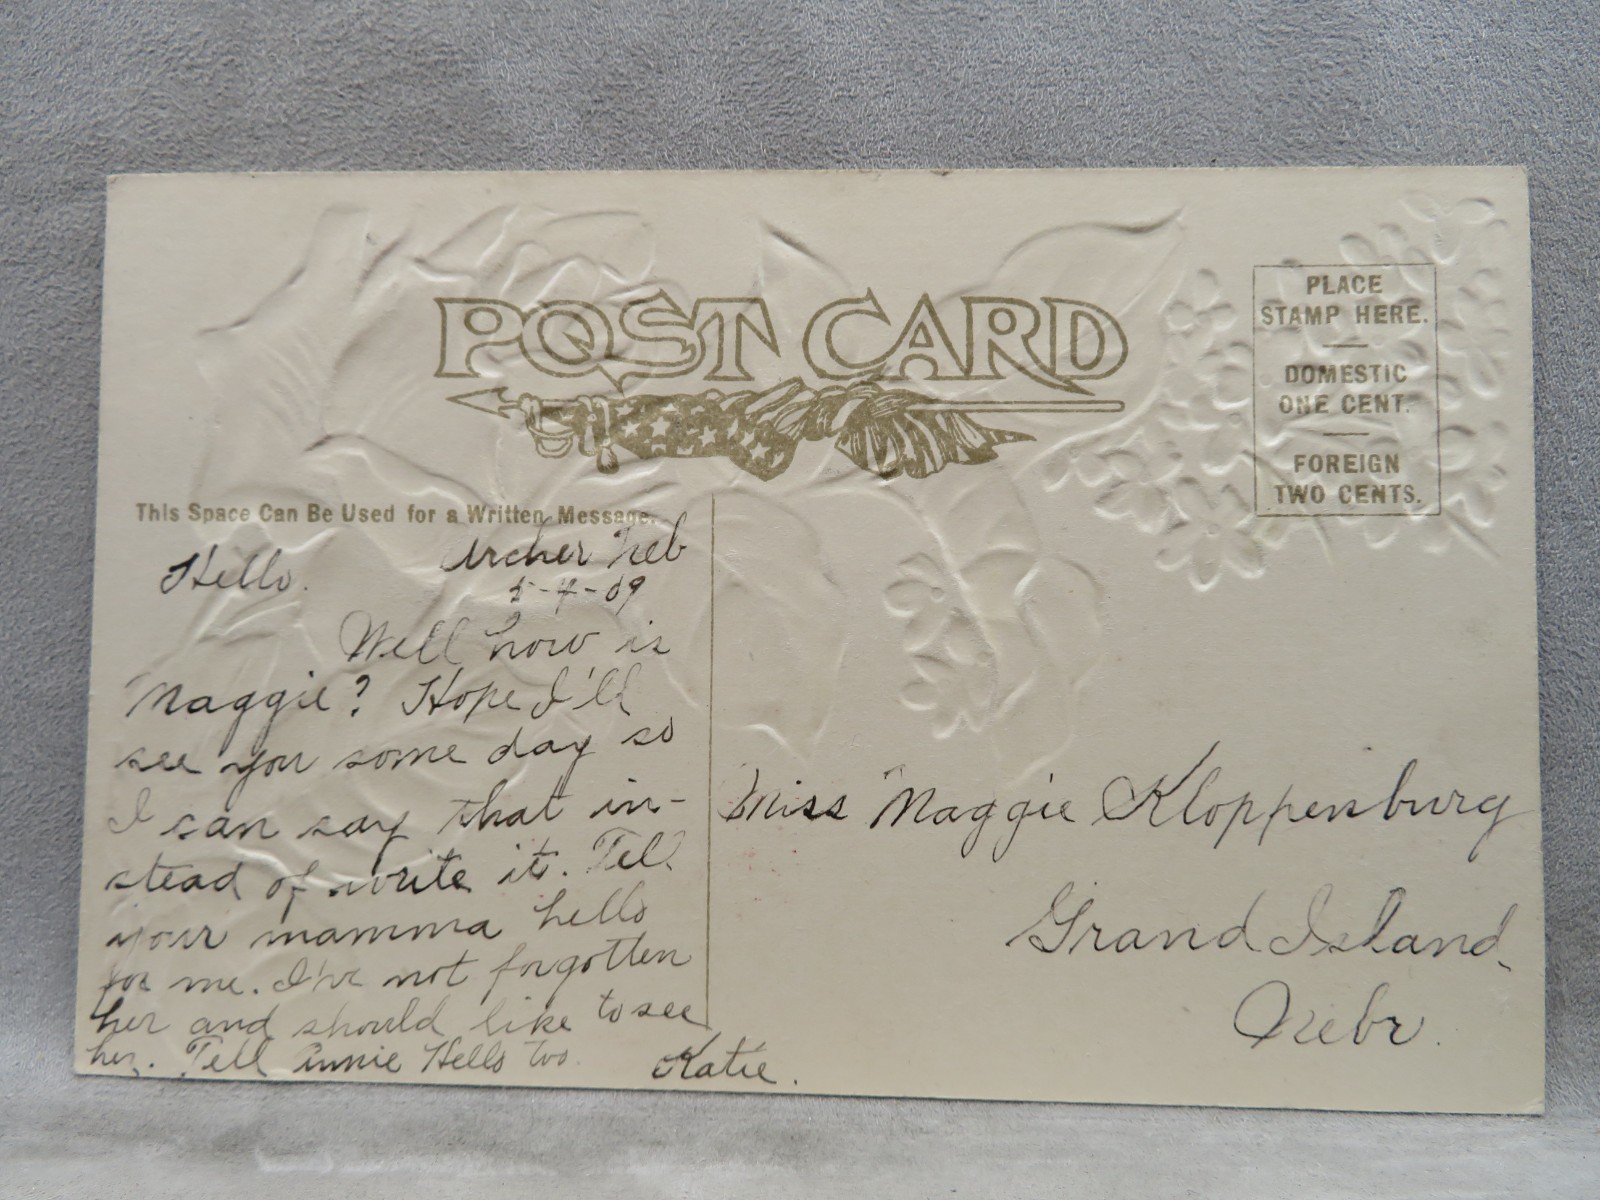 POST CARD
PLACE
STAMP HERE.
DOMESTIC
ONE CENT.
FOREIGN
TWO CENTS.
This Space Can Be Used for a Written Message.
Archer Neb
Hello.
5-4-09
Well how is
Maggie? Hope I'll
see you some day so
I can say that in-
stead of write it. Tell
your mamma hello
for me. I've not forgotten
her and should like to see
her. Tell Annie Hello too.
Katie.
Miss Maggie Kloppenburg
Grand Island,
Nebr.